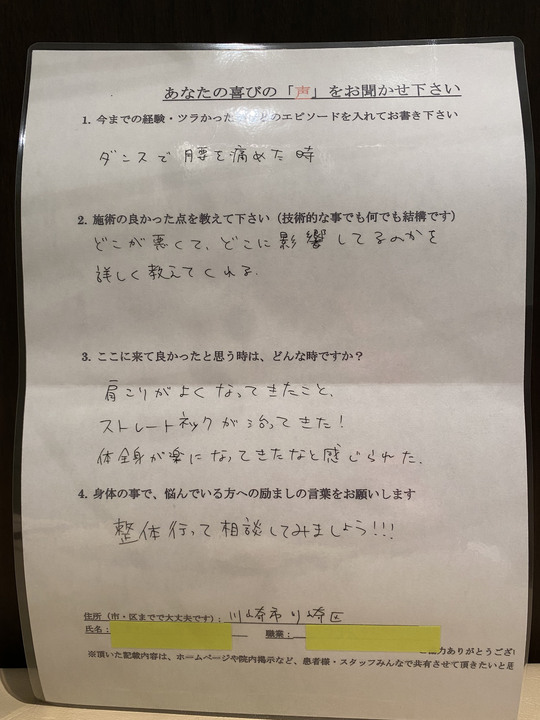 あなたの喜びの「声」をお聞かせ下さい
1. 今までの経験・ツラかった のエピソードを入れてお書き下さい
ダンスで腰を痛めた時
2. 施術の良かった点を教えて下さい（技術的な事でも何でも結構です）
どこが悪くて、どこに影響してるのかを
詳しく教えてくれる.
3. ここに来て良かったと思う時は、どんな時ですか？
肩こりがよくなってきたこと、
ストレートネックが治ってきた！
体全身が楽になってきたなと感じられた.
4. 身体の事で、悩んでいる方への励ましの言葉をお願いします
整体行って相談してみましょう!!!
住所（市・区までで大丈夫です）：川崎市川崎区
氏名： 職業：
協力ありがとうござい
※頂いた記載内容は、ホームページや院内掲示など、患者様・スタッフみんなで共有させて頂きたいと思